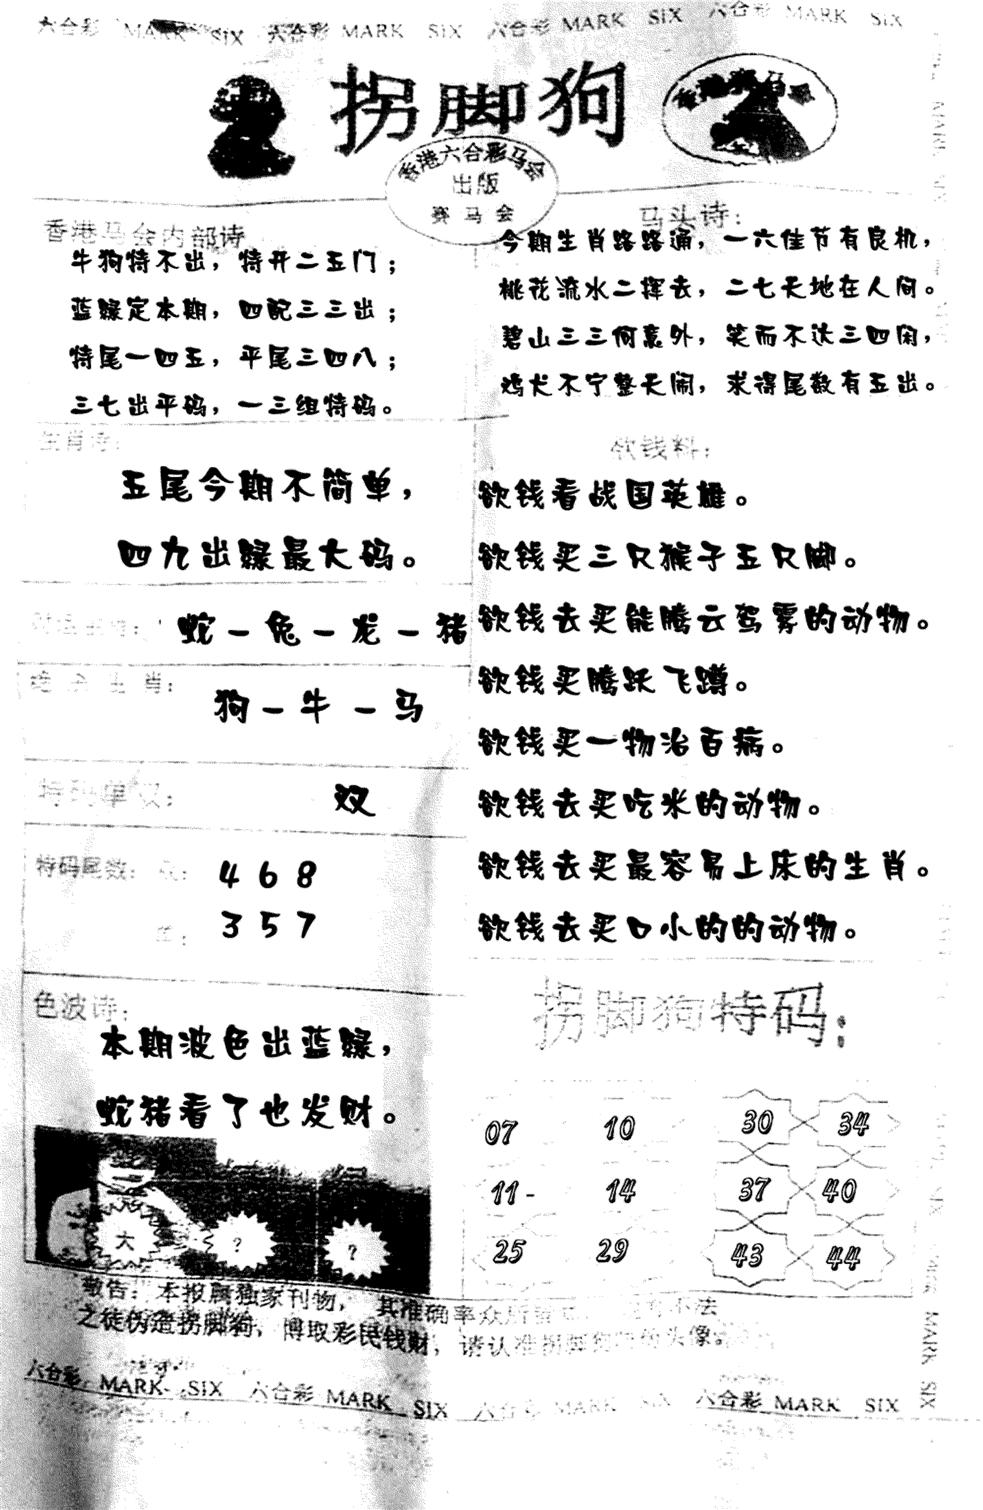 六合彩 MARK SIX 六合彩 MARK SIX 六合彩 MARK SIX 六合彩 MARK SIX
拐脚狗
香港赛马会
香港六合彩马会
出版
赛马会
香港马会内部诗
牛狗特不出，特开二五门；
蓝绿定本期，四配三三出；
特尾一四五，平尾三四八；
三七出平码，一三组特码。
马头诗：
今期生肖路路通，一六佳节有良机，
桃花流水二挥去，二七天地在人间。
碧山三三何意外，笑而不达三四闲，
鸡犬不宁整天闹，求得尾数有五出。
生肖诗：
五尾今期不简单，
四九出绿最大码。
蛇－兔－龙－猪
绝杀生肖：
狗－牛－马
特码单双：
双
特码尾数：双：468
单：357
色波诗：
本期波色出蓝绿，
蛇猪看了也发财。
大 ? ?
欲钱料：
欲钱看战国英雄。
欲钱买三只猴子五只脚。
欲钱去买能腾云驾雾的动物。
欲钱买腾跃飞蹲。
欲钱买一物治百病。
欲钱去买吃米的动物。
欲钱去买最容易上床的生肖。
欲钱去买口小的的动物。
拐脚狗特码：
07 10 30 34
11- 14 37 40
25 29 43 44
敬告：本报属独家刊物，其准确率众所 不法
之徒伪造拐脚狗，博取彩民钱财，请认准拐脚狗 头像。
六合彩 MARK SIX 六合彩 MARK SIX 六合彩 MARK SIX 六合彩 MARK SIX
MARK SIX